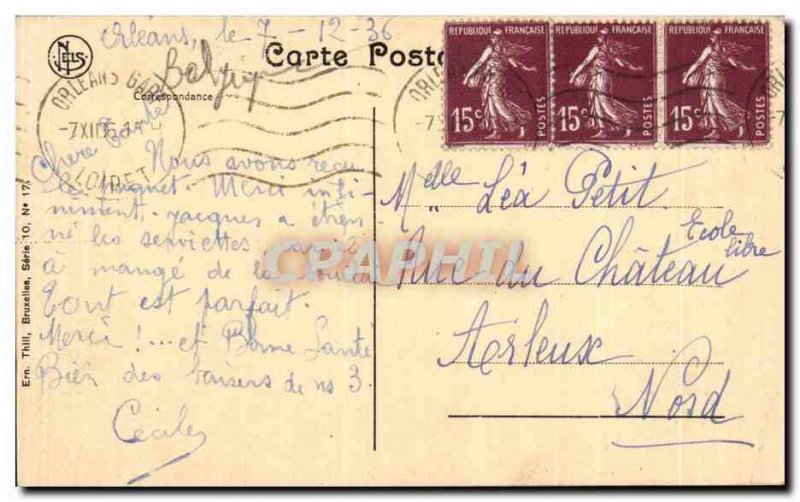 Orléans, le 7-12-36
Belgique
NELS
Carte Posta
Correspondance
ORLEANS GARE
-7 XII 36
LOIRET
REPUBLIQUE FRANÇAISE
15c POSTES
REPUBLIQUE FRANÇAISE
15c POSTES
REPUBLIQUE FRANÇAISE
15c POSTES
Chère Tante
Nous avons reçu
Merci infi-
niment. Jacques a étren-
né les serviettes
à mangé de la
Tout est parfait.
Merci !... et Bonne Santé
Bien des baisers de ns 3.
Cécile
Melle Léa Petit
Ecole libre
Rue du Château
Arleux
Nord
Ern. Thill, Bruxelles, Série 10, No 17
CPAPHIL